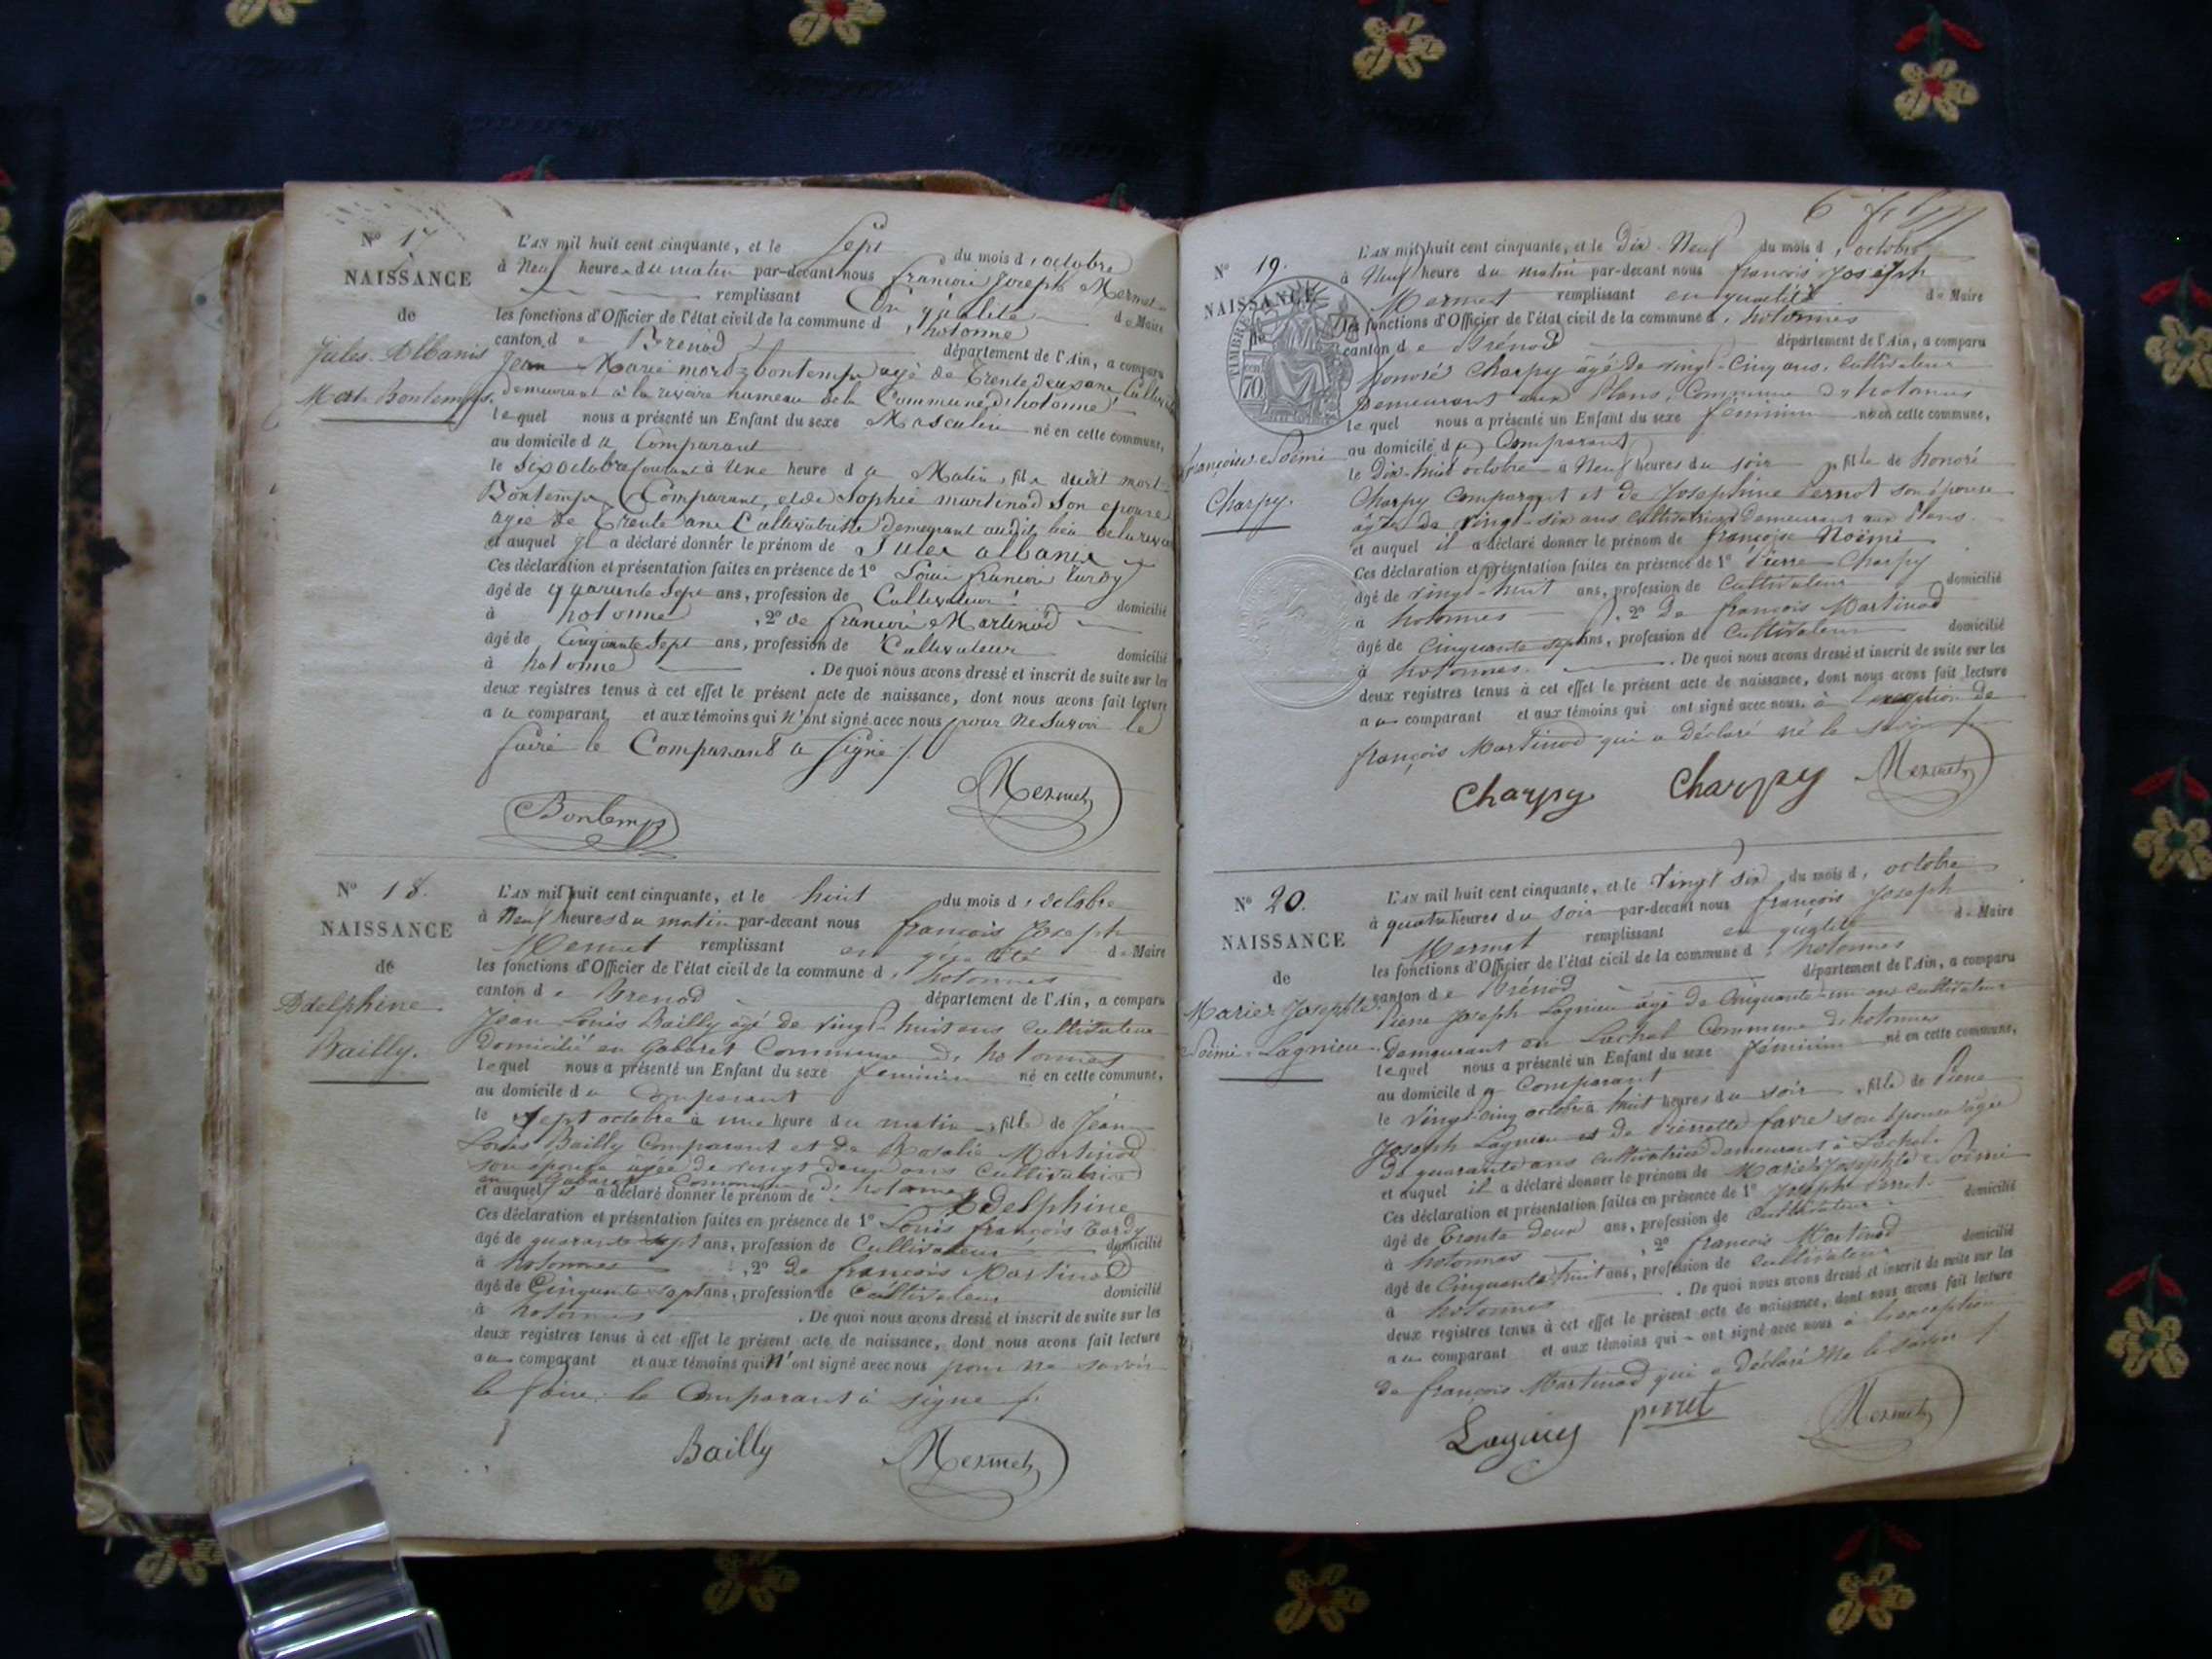 N° 17
NAISSANCE
de
Jules Albanis
Mort Bontemps.
L'AN mil huit cent cinquante, et le Sept du mois d'octobre
à Neuf heures du matin par-devant nous françois Joseph Mermet
remplissant En qualité de Maire
les fonctions d'Officier de l'état civil de la commune d'hotonne
canton de Brenod département de l'Ain, a comparu
Jean Marie mort bontemps agé de Trente deux ans Cultiv
demeurant à la rivoire hameau de la Commune d'hotonne
lequel nous a présenté un Enfant du sexe Masculin né en cette commune,
au domicile du Comparant
le Six octobre Courant à Une heure du Matin, fils dudit mort
Bontemps Comparant, et de Sophie martinod Son epouse
agée de Trente ans Cultivatrice demeurant audit lieu de la
et auquel il a déclaré donner le prénom de Jules albanis
Ces déclaration et présentation faites en présence de 1° Louis françois turdy
âgé de quarante Sept ans, profession de Cultivateur domicilié
à hotonne, 2° de françois Martinod
âgé de Cinquante Sept ans, profession de Cultivateur domicilié
à hotonne. De quoi nous avons dressé et inscrit de suite sur les
deux registres tenus à cet effet le présent acte de naissance, dont nous avons fait lecture
au comparant et aux témoins qui n'ont signé avec nous pour ne Savoir le
faire le Comparant a Signé
Bontemps
Mermet
N° 18.
NAISSANCE
de
Adelphine
Bailly.
L'AN mil huit cent cinquante, et le huit du mois d'octobre
à Neuf heures du matin par-devant nous françois Joseph
Mermet remplissant en qualité de Maire
les fonctions d'Officier de l'état civil de la commune d'hotonnes
canton de Brenod département de l'Ain, a comparu
Jean Louis Bailly âgé de vingt-huit ans Cultivateur
domicilié en Gabaret Commune d'hotonnes
lequel nous a présenté un Enfant du sexe feminin né en cette commune,
au domicile du Comparant
le Sept octobre à une heure du matin, fille de Jean
Louis Bailly Comparant et de Rosalie Martinod
son épouse âgée de vingt deux ans Cultivatrice
en Gabaret Commune d'hotonnes
et auquel il a déclaré donner le prénom de Adelphine
Ces déclaration et présentation faites en présence de 1° Louis françois Tardy
âgé de quarante sept ans, profession de Cultivateur domicilié
à hotonnes, 2° de françois Martinod
âgé de Cinquante sept ans, profession de Cultivateur domicilié
à hotonnes. De quoi nous avons dressé et inscrit de suite sur les
deux registres tenus à cet effet le présent acte de naissance, dont nous avons fait lecture
au comparant et aux témoins qui N'ont signé avec nous pour ne savoir
le faire. le Comparant à signé
Bailly
Mermet
N° 19.
NAISSANCE
de
TIMBRE
70
françoise Noëmi
Charpy.
L'AN mil huit cent cinquante, et le Dix-Neuf du mois d'octobre
à Neuf heure du matin par-devant nous françois Joseph
Mermet remplissant en qualité de Maire
les fonctions d'Officier de l'état civil de la commune d'hotonnes
canton de Brénod département de l'Ain, a comparu
honoré Charpy âgé de vingt-Cinq ans, Cultivateur
Demeurant aux Plans, Commune d'hotonnes
lequel nous a présenté un Enfant du sexe féminin né en cette commune,
au domicile du Comparant
le Dix-huit octobre à Neuf heures du soir, fille de honoré
Charpy Comparant et de Josephine Pernot son épouse
âgée de vingt-six ans Cultivatrice Demeurant aux Plans.
et auquel il a déclaré donner le prénom de françoise Noëmi
Ces déclaration et présentation faites en présence de 1° Pierre Charpy
âgé de vingt-huit ans, profession de Cultivateur domicilié
à hotonnes, 2° De françois Martinod
âgé de Cinquante sept ans, profession de Cultivateur domicilié
à hotonnes. De quoi nous avons dressé et inscrit de suite sur les
deux registres tenus à cet effet le présent acte de naissance, dont nous avons fait lecture
au comparant et aux témoins qui ont signé avec nous, à l'exception de
françois Martinod qui a déclaré ne le savoir
Charpy Charpy Mermet
N° 20.
NAISSANCE
de
Marie Josephte
Noëmi Lagnieu
L'AN mil huit cent cinquante, et le vingt six du mois d'octobre
à quatre heures du soir par-devant nous françois Joseph
Mermet remplissant en qualité de Maire
les fonctions d'Officier de l'état civil de la commune d'hotonnes
canton de Brénod département de l'Ain, a comparu
Pierre Joseph Lagnieu âgé de Cinquante-un ans cultivateur
Demeurant en Lachal Commune d'hotonnes
lequel nous a présenté un Enfant du sexe féminin né en cette commune,
au domicile du Comparant
le vingt-cinq octobre à huit heures du soir, fille de Pierre
Joseph Lagnieu et de Pierrette favre son épouse âgée
de quarante ans cultivatrice demeurant à Lachal.
et auquel il a déclaré donner le prénom de Marie Josephte Noëmi
Ces déclaration et présentation faites en présence de 1° Joseph Perret
âgé de Trente Deux ans, profession de Cultivateur domicilié
à hotonnes, 2° françois Martinod
âgé de Cinquante huit ans, profession de cultivateur domicilié
à hotonnes. De quoi nous avons dressé et inscrit de suite sur les
deux registres tenus à cet effet le présent acte de naissance, dont nous avons fait lecture
au comparant et aux témoins qui ont signé avec nous à l'exception
de françois Martinod qui a déclaré Ne le savoir
Lagnieu perret Mermet